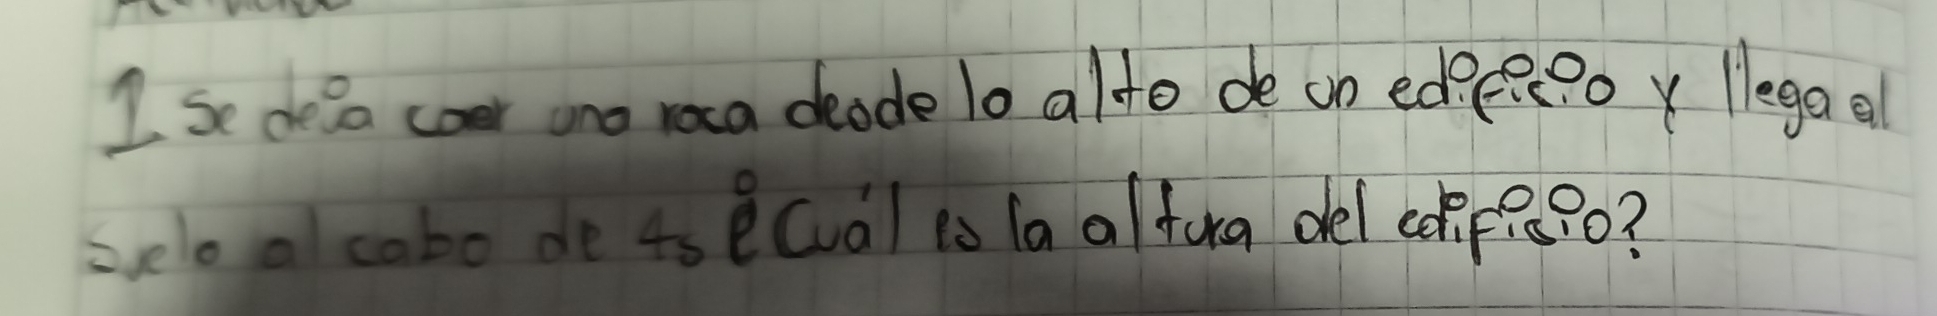 1 Se deja caer una roca desde lo alto de un edificio y llega al
suelo al cabo de 4s ¿Cuál es la altura del edificio?